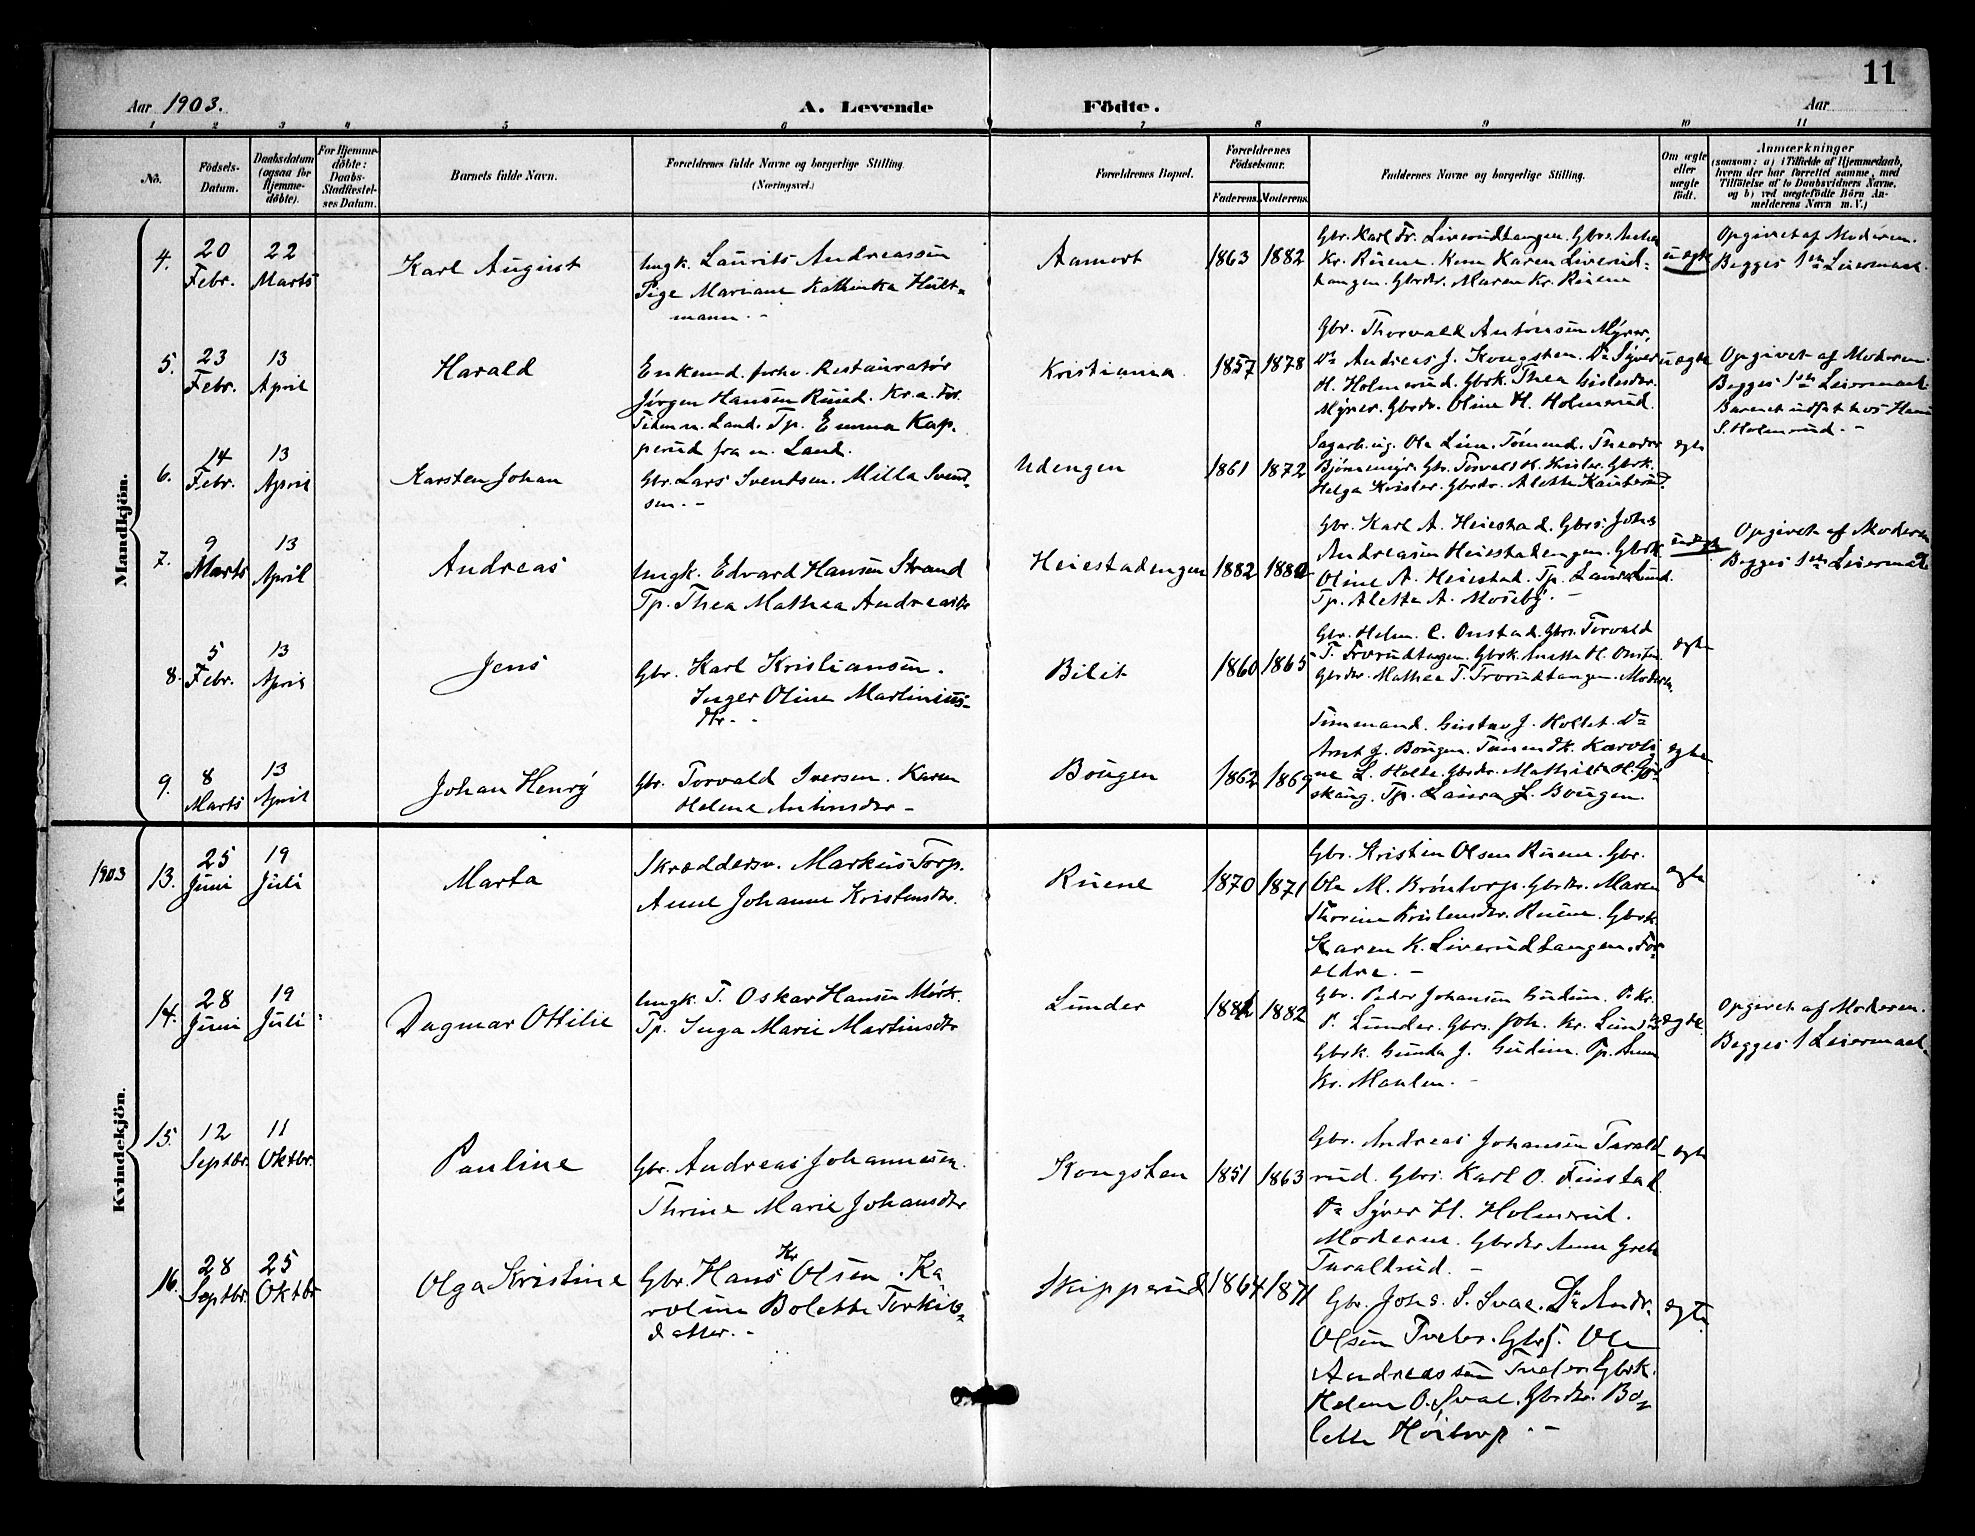 11
Aar 1903.
A. Levende Födte.
Aar
1 2 3 4 5 6 7 8 9 10 11
No.
Födsels-
Datum.
Daabsdatum
(ogsaa for
Hjemme-
döbte).
For Hjemme-
döbte:
Daabs-
Stadfæstel-
ses Datum.
Barnets fulde Navn.
Forældrenes fulde Navne og borgerlige Stilling.
(Næringsvei.)
Forældrenes Bopæl.
Forældrenes
Födselsaar.
Faderens. Moderens.
Faddernes Navne og borgerlige Stilling.
Om ægte
eller
uægte
födt.
Anmærkninger
(saasom: a) i Tilfælde af Hjemmedaab,
hvem der har forrettet samme, med
Tilföielse af to Daabsvidners Navne,
og b) ved uægtefödte Börn An-
melderens Navn m. V.)
Mandkjön.
4.
20
Febr.
22
Marts
Karl August
Ungk. Laurits Andreassen
Pige Mariane Kathinka Hult-
mann. -
Aamort
1863 1882
Gbr. Karl Fr. Liverudtangen. Gbrs. Anton
Kr. Ruene. Kone Karen Liverud-
tangen. Gbrdtr. Maren Kr. Ruene
uægte
Opgivet af Moderen.
Begges 1ste Leiermaal.
5.
23
Febr.
13
April
Harald
Enkemd. forhv. Restauratør
Jørgen Hansen Ruud. Kr.a. For.
Tidem n. Land. Tp. Emma Kap-
perud fra n. Land.
Kristiania
1857 1878
Gbr. Thorvald Antonsen Myrer,
Do Andreas J. Kongsten. Do Syver
H. Holmerud. Gbrk. Thea Gislesdtr.
Myrer. Gbrdtr. Oline H. Holmerud.
uægte
Opgivet af Moderen.
Begges 1ste Leiermaal.
Barnet udsat hos Hans
S. Holmerud. -
6.
14
Febr.
13
April
Karsten Johan
Gbr. Lars Svendsen. Milla Svend-
sen. -
Udengen
1861 1872
Sagarb. ug. Ole Lien. Tømmd. Theodor
Bjønnemyr. Gbr. Torvald H. Kvisler. Gbrk.
Helga Kvisler. Gbrdtr. Alette Kauserud.
ægte
7.
9
Marts
13
April
Andreas
Ungk. Edvard Hansen Strand
Tp. Thea Mathea Andreasdtr
Heiestadengen
1882 1882
Gbr. Karl A. Heiestad. Gbrs. Johs
Andreasen Heiestadengen. Gbrk
Oline A. Heiestad. Tp. Laura Lund.
Tp. Alette A. Moseby. -
uægte
Opgivet af Moderen
Begges 1ste Leiermaal
8.
5
Febr.
13
April
Jens
Gbr. Karl Kristiansen.
Inger Oline Martinius-
dtr. -
Bilit
1860 1865
Gbr. Helm. C. Onstad. Gbrs. Torvald
T. Frorudtangen. Gbrk. Anette H. Onstad.
Gbrdtr. Mathea T. Frorudtangen. Moderen.
ægte
9.
8
Marts
13
April
Johan Henry
Gbr. Torvald Iversen. Karen
Helene Antonsdtr -
Bougen
1862 1869
Tømmermand. Gustav J. Holtet. Do
Arnt J. Bougen. Tømmdk. Karoli-
ne L. Holte. Gbrdtr. Mathilde H.
skaug. Tp. Laura J. Bougen.
ægte
Kvindekjön.
1903
13.
25
Juni
19
Juli
Marta
Skræddersv. Markus Torp.
Anne Johanne Kristensdtr.
Ruene
1870 1871
Gbr. Kristen Olsen Ruene. Gbr.
Ole M. Brøntorp. Gbrdtr. Maren
Thorine Kristensdtr. Ruene. Gbrk.
Karen K. Liverudtangen. For-
ældre. -
ægte
14.
28
Juni
19
Juli
Dagmar Ottilie
Ungk. T. Oskar Hansen Mørk.
Tp. Inga Marie Martinsdtr
Lunder
1882 1882
Gbr. Peder Johansen Gudim. P. Kr.
P. Lunder. Gbrs. Joh. Kr. Lunder
Gbrk. Gunda J. Gudim. Tp. Anne
Kr. Maulen. -
uægte
Opgivet af Moderen.
Begges 1 Leiermaal.
15.
12
Septbr.
11
Oktbr.
Pauline
Gbr. Andreas Johannesen.
Thrine Marie Johansdtr
Kongsten
1851 1863
Gbr. Andreas Johansen Tarald-
rud. Gbrs. Karl O. Finstad.
Do Syver H. Holmerud.
Moderen. Gbrdtr Anne Grete
Taraldrud. -
ægte
16.
28
Septbr.
25
Oktbr
Olga Kristine
Gbr. Hans Kr Olsen. Ka-
roline Bolette Torkils-
datter. -
Skipperud
1864 1871
Gbr. Johs. S. Svae. Do Andr.
Olsen Tveter. Gbrs. Ole
Andreassen Tveter. Gbrk.
Helene O. Svae. Gbrdtr. Bo-
lette Høitorp. -
ægte